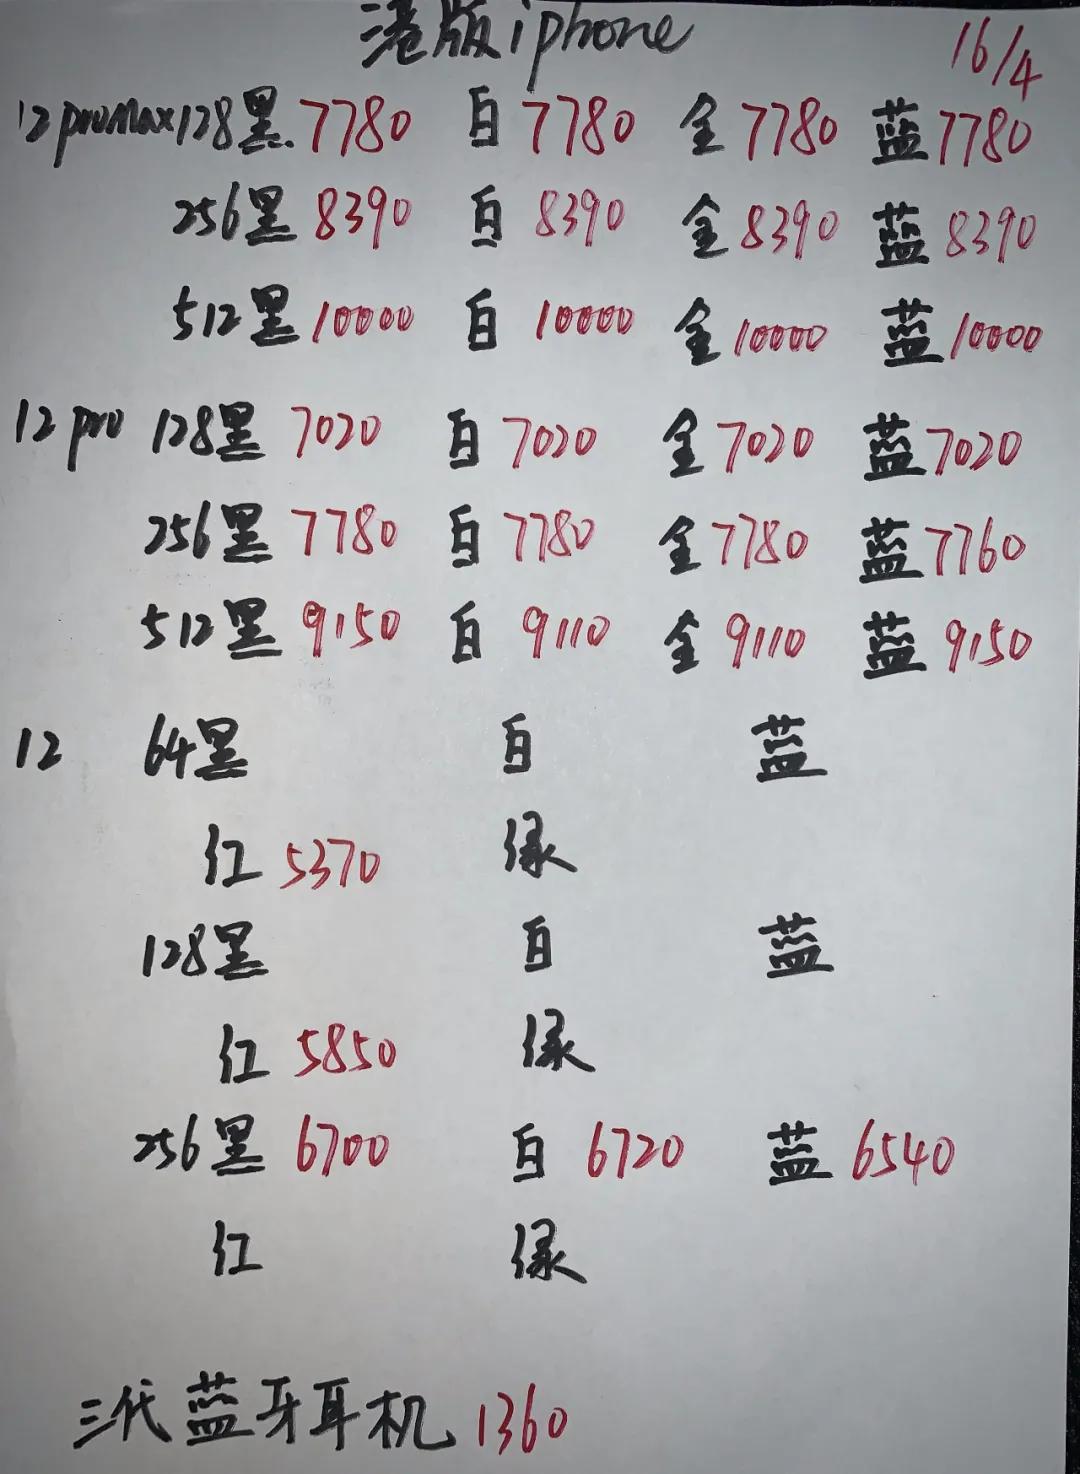 港版iphone 16/4
12 promax 128黑 7780 白 7780 金 7780 蓝 7780
256黑 8390 白 8390 金 8390 蓝 8390
512黑 10000 白 10000 金 10000 蓝 10000
12 pro 128黑 7020 白 7020 金 7020 蓝 7020
256黑 7780 白 7780 金 7780 蓝 7760
512黑 9150 白 9110 金 9110 蓝 9150
12 64黑 白 蓝
红 5370 绿
128黑 白 蓝
红 5850 绿
256黑 6700 白 6720 蓝 6540
红 绿
三代蓝牙耳机 1360